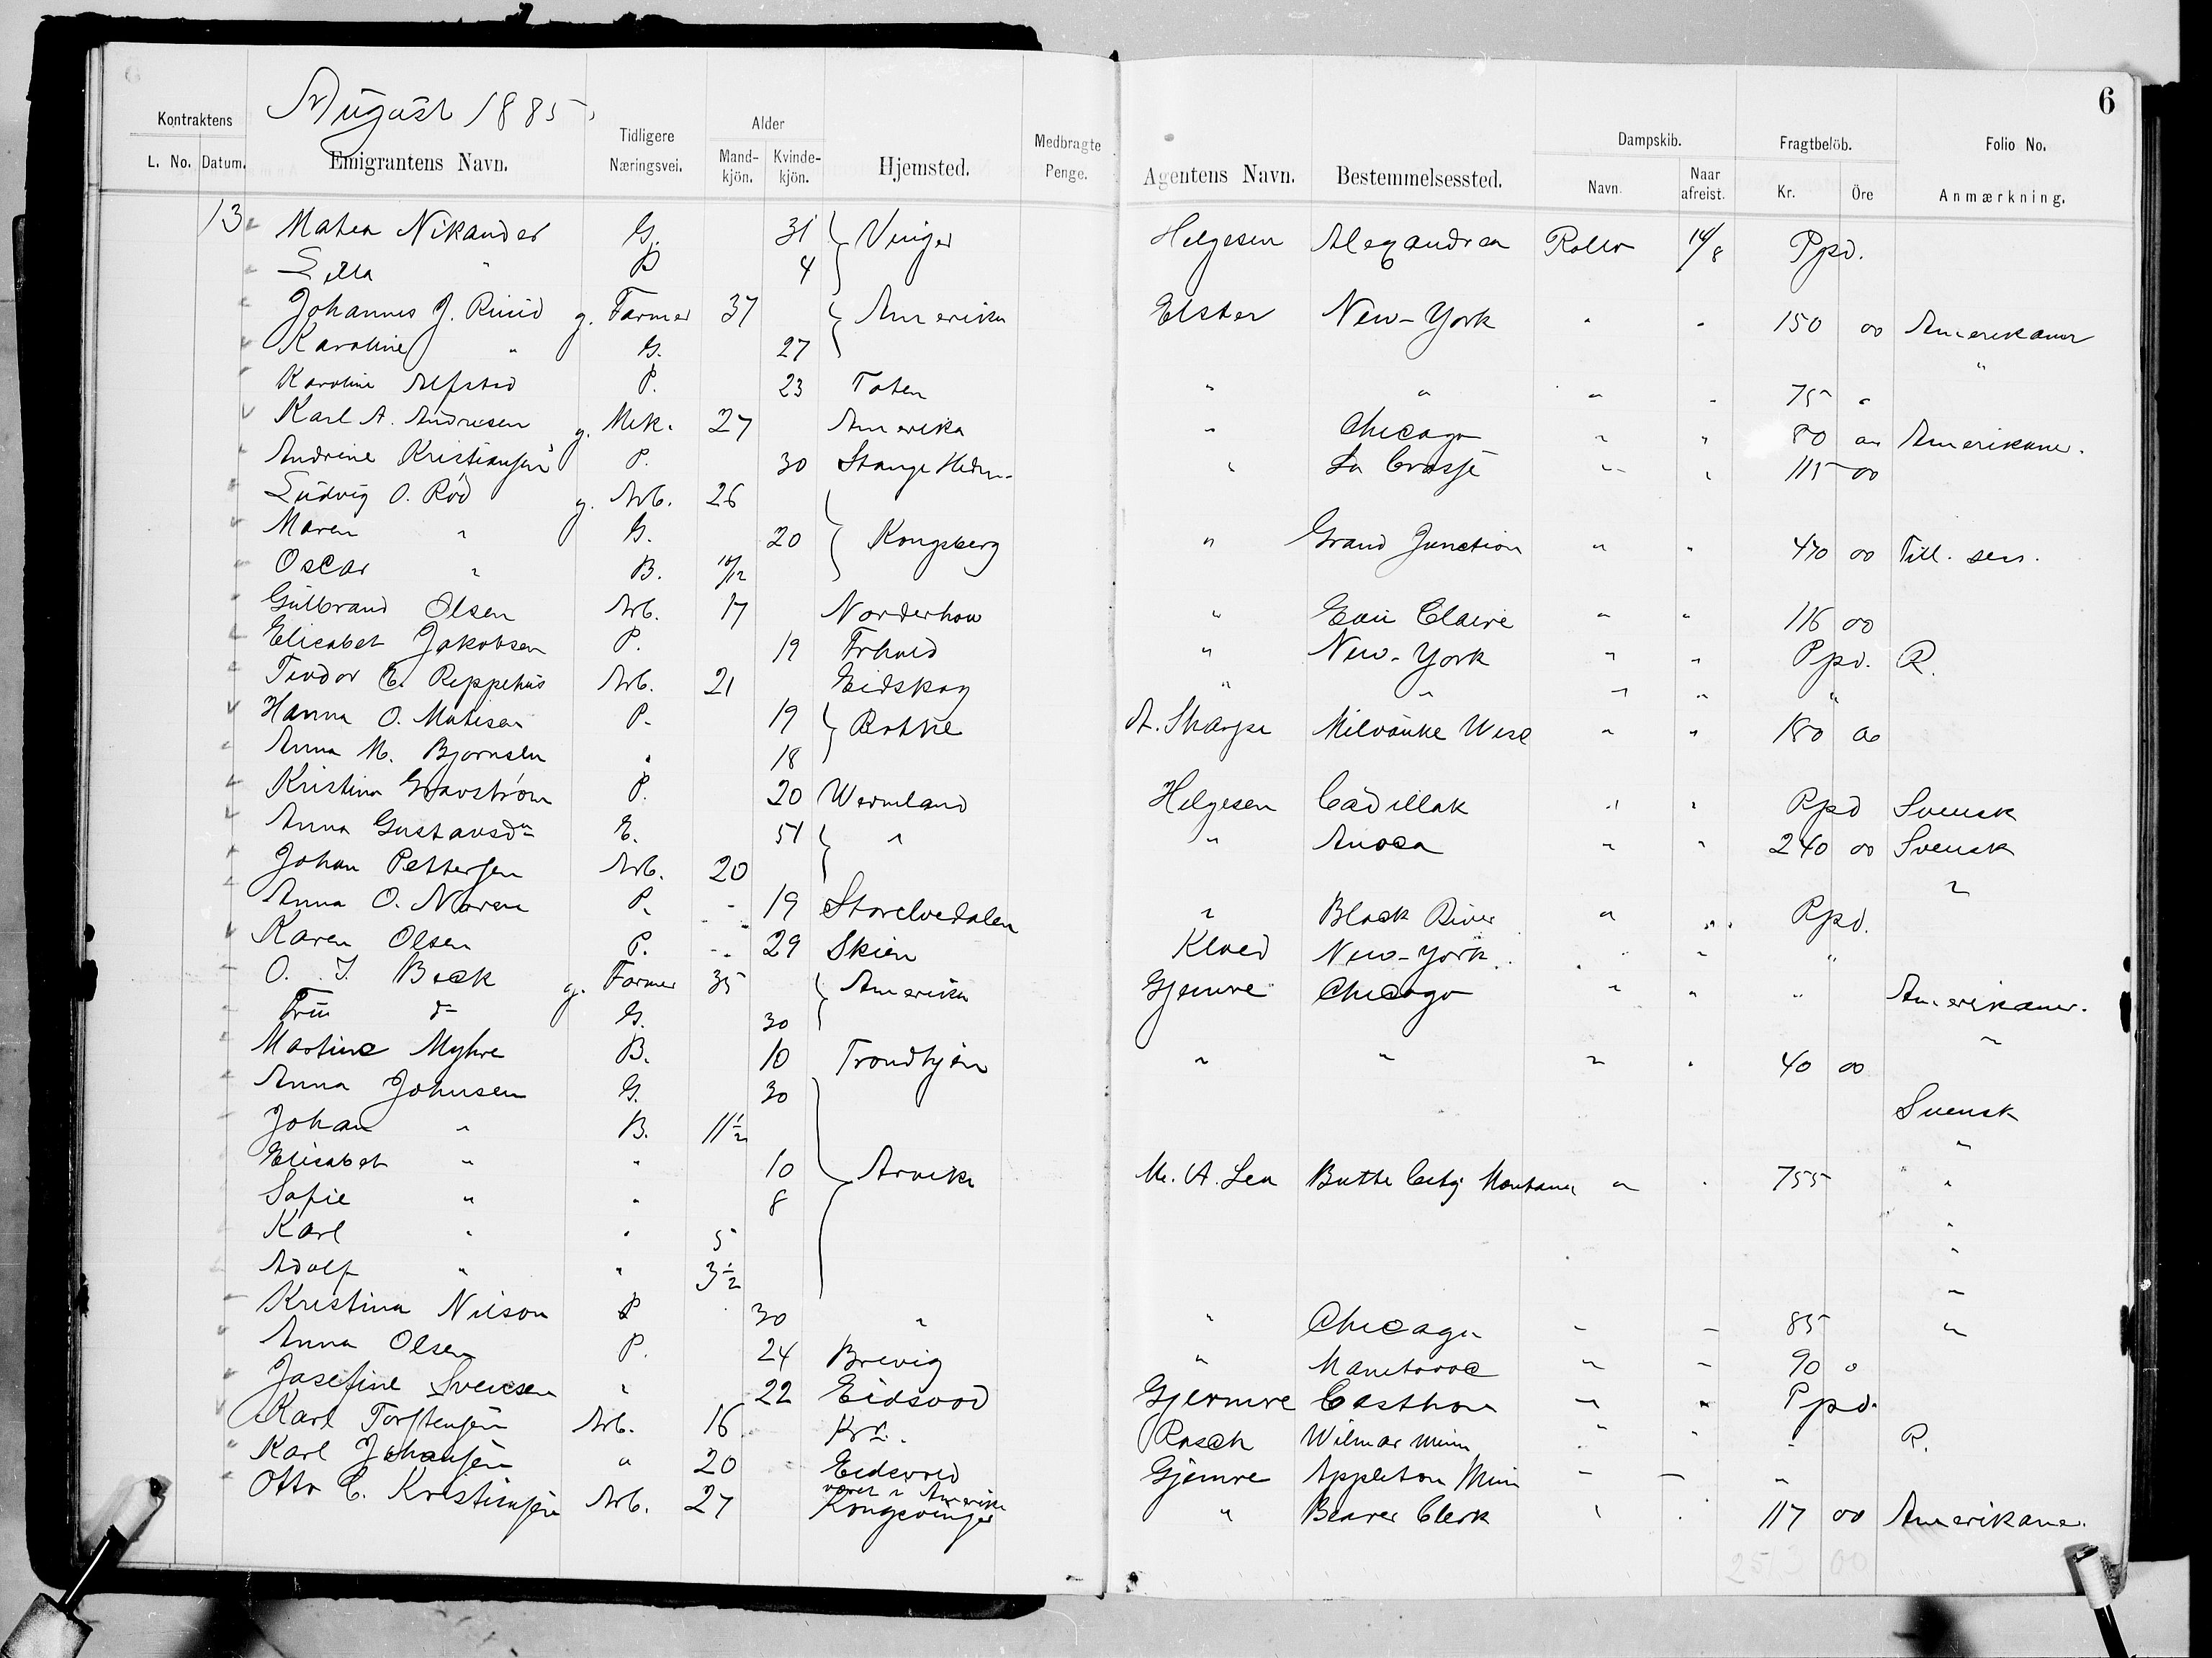 6
August 1885.
Kontraktens
L. No. Datum.
Emigrantens Navn.
Tidligere Næringsvei.
Alder
Mand-kjön. Kvinde-kjön.
Hjemsted.
Medbragte Penge.
Agentens Navn.
Bestemmelsessted.
Dampskib.
Navn. Naar afreist.
Fragtbelöb.
Kr. Öre
Folio No.
Anmærkning.
13 Matea Nikander G. 31 Vinger Helgesen Alexandrea Rollo 14/8 Ppd.
Lilla " B 4
Johannes J. Ruud g. Farmer 37 Amerika Elster New-York " " 150 00 Amerikaner
Karoline " G. 27 "
Karoline Alfstad P. 23 Toten " " " " 75 "
Karl A. Andresen g. Mek. 27 Amerika " Chicago " " 80 00 Amerikaner.
Andrine Kristiansen P. 30 Stange Hedm. " La Crosse " " 115 00
Ludvig O. Röd g. Arb. 26
Maren " G. 20 Kongsberg " Grand Junction " " 470 00 Till. sen.
Oscar " B. 10/12
Gulbrand Olsen Arb. 17 Norderhov " Eau Claire " " 116 00
Elisabet Jakobsen P. 19 Frhald " New-York " " Ppd. R.
Teodor E. Reppehus Arb. 21 Eidskog " " " " "
Hanna O. Matisen P. 19 A. Sharpe Milvauke Wisc " " 180 00
Anna M. Bjornsen " 18
Kristina P. 20 Wermland Helgesen Cadillak " " Ppd Svensk
Anna Gustavsdtr E. 51 " " Anoca " " 240 00 Svensk
Johan Pettersen Arb. 20 "
Anna O. Noren P. 19 Storelvedalen " Black River " " Ppd.
Karen Olsen P. 29 Skien New-York " " "
O. J. Beck g. Farmer 35 Amerika Gjemre Chicago " " " Amerikaner.
Fru do G. 30 "
Martine Myhre B. 10 Trondhjem " " " " 40 00
Anna Johnsen G. 30 Svensk
Johan " B. 11½ "
Elisabet " " 10 Arvika M. A. Lea Butte City Montana " " 755 "
Sofie " " 8 "
Karl " " 5 "
Adolf " " 3½ "
Kristina Nilson P 30 " " Chicago " " 85 "
Anna Olsen P. 24 Brevig " Manitovoc " " 90 "
Josefine Svensen " 22 Eidsvod Gjermre " " Ppd.
Karl Torstensen Arb. 16 Kra. Rasch Wilmar Minn " " " R.
Karl Johansen " 20 Eidsvold Gjemre Appleton Min " " "
Otto C. Kristiansen Arb. 27 været i Amerika Kongsvinger " Beaver Clerk " " 117 00 Amerikaner.
253 00